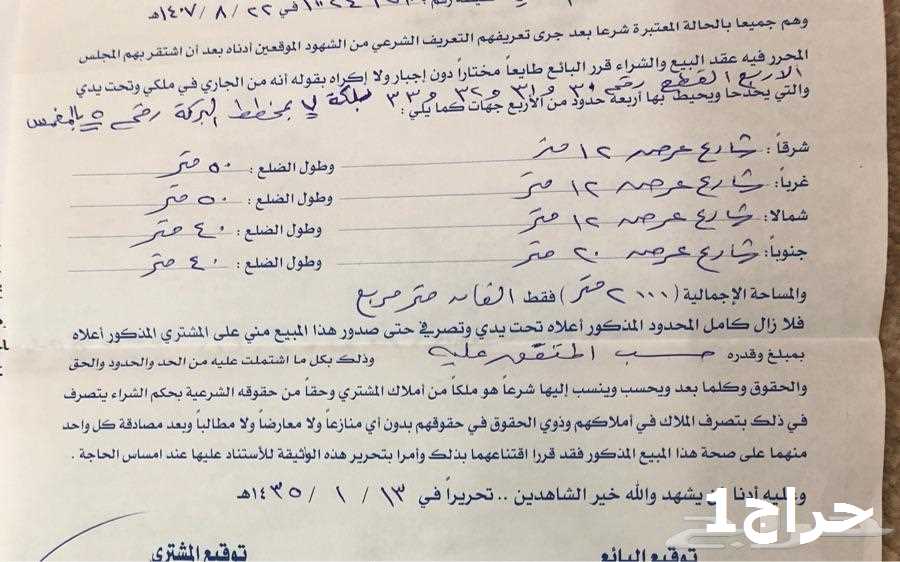 في ٢٢ / ٨ / ١٤٠٧هـ
وهم جميعا بالحالة المعتبرة شرعا بعد جرى تعريفهم التعريف الشرعي من الشهود الموقعين أدناه بعد أن اشتقر بهم المجلس
المحرر فيه عقد البيع والشراء قرر البائع طايعاً مختاراً دون إجبار ولا إكراه بقوله أنه من الجاري في ملكي وتحت يدي
الاربع القطع رقم ٣٠ و ٣١ و ٣٢ و ٣٣ بلكة ٧ بمخطط البركة رقم ٥ بالمغمس
والتي يحدها ويحيط بها أربعة حدود من الأربع جهات كما يلي :
شرقاً : شارع عرض ١٢ متر وطول الضلع : ٥٠ متر
غرباً : شارع عرض ١٢ متر وطول الضلع : ٥٠ متر
شمالا : شارع عرض ١٢ متر وطول الضلع : ٤٠ متر
جنوباً : شارع عرض ٢٠ متر وطول الضلع : ٤٠ متر
والمساحة الإجمالية ( ٢٠٠٠ متر ) فقط الفان متر مربع
فلا زال كامل المحدود المذكور أعلاه تحت يدي وتصرفي حتى صدور هذا المبيع مني على المشتري المذكور أعلاه
بمبلغ وقدره حسب المتفق عليه وذلك بكل ما اشتملت عليه من الحد والحدود والحق
والحقوق وكلما بعد ويحسب وينسب إليها شرعاً هو ملكاً من أملاك المشتري وحقاً من حقوقه الشرعية بحكم الشراء يتصرف
في ذلك بتصرف الملاك في أملاكهم وذوي الحقوق في حقوقهم بدون أي منازعاً ولا معارضاً ولا مطالباً وبعد مصادقة كل واحد
منهما على صحة هذا المبيع المذكور فقد قررا اقتناعهما بذلك وأمرا بتحرير هذه الوثيقة للأستناد عليها عند امساس الحاجة .
وعليه أدنا من يشهد والله خير الشاهدين .. تحريراً في ١٣ / ١ / ١٤٣٥هـ
توقيع البائع توقيع المشتري
حراج1